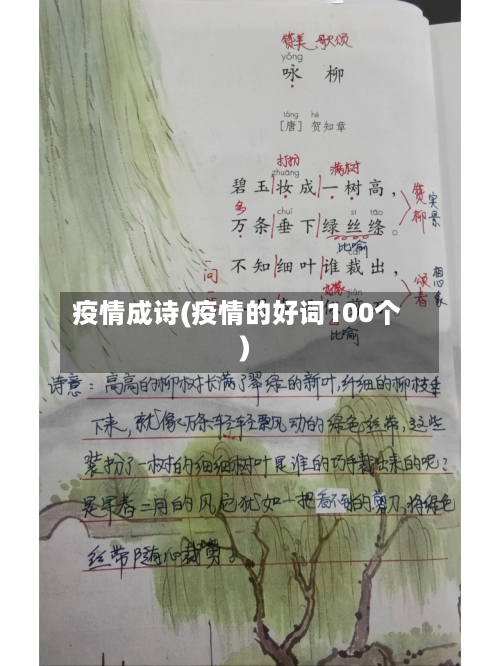 赞美、歌颂
yǒng
咏 柳
táng hè
[唐] 贺知章
打扮 满树
zhuāng
碧玉妆成一树高，
赞柳 实景
多
chuí sī tāo
万条垂下绿丝绦。
比喻
不知细叶谁裁出，
一问
颂春 想象
疫情成诗(疫情的好词100个
)
jiǎn
比喻
诗意：高高的柳树长满了翠绿的新叶,纤细的柳枝垂
下来,就像万条轻轻飘动的绿色丝带,这些
装扮了一树的细细树叶是谁的巧手裁出来的呢?
是早春二月的风它犹如一把看不到的剪刀,将绿色
丝带随心裁剪。